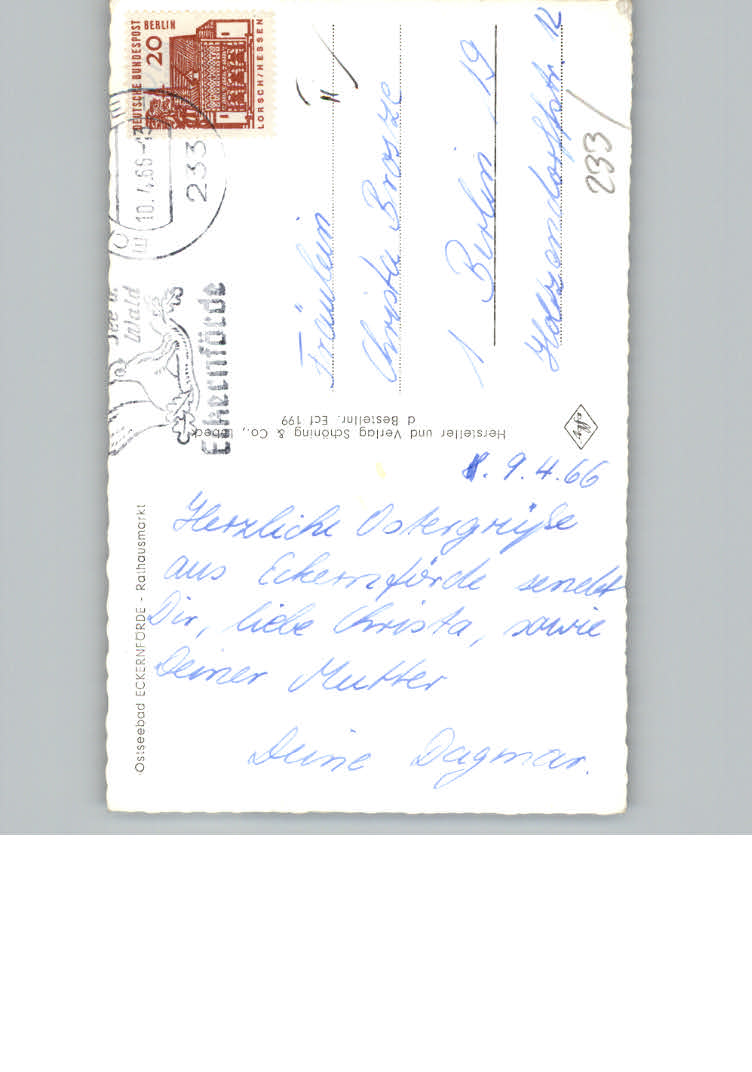 Ostseebad ECKERNFÖRDE - Rathausmarkt
9.4.66
Herzliche Ostergrüße
aus Eckernförde sendet
Dir, liebe Christa, sowie
Deiner Mutter
Deine Dagmar.
Hersteller und Verlag Schöning & Co., Lübeck
Bestellnr. Ecf 199
Agfa
DEUTSCHE BUNDESPOST BERLIN
20
LORSCH/HESSEN
10.4.66
233
See u.
Wald
Eckernförde
Fräulein
Christa Brosze
1 Berlin 19
12
233